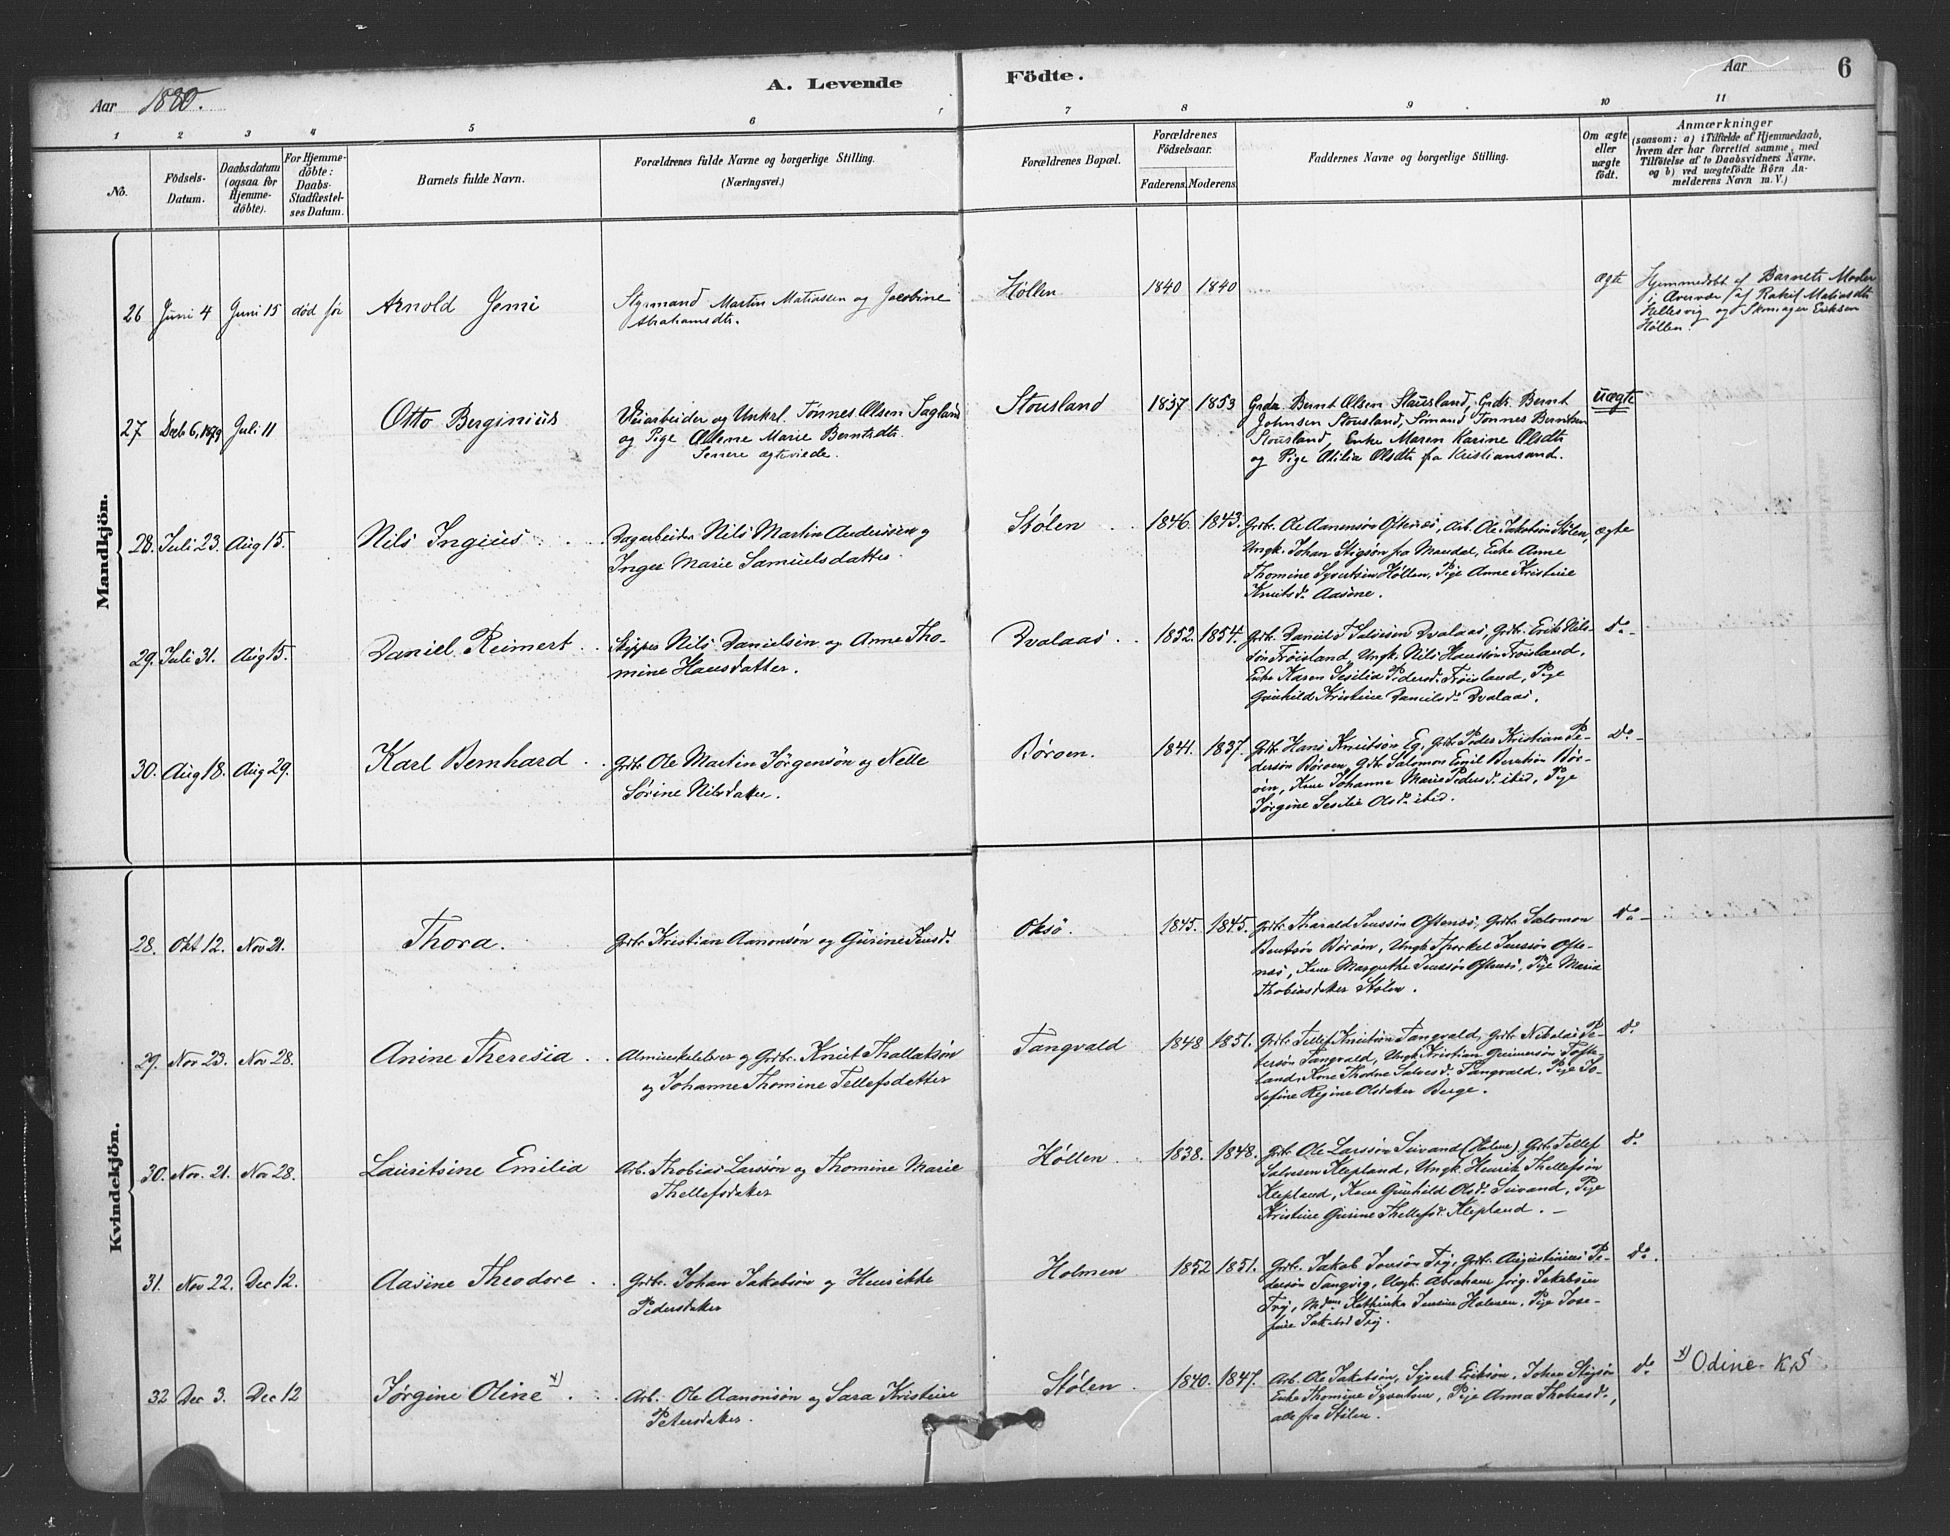 Aar 1880. A. Levende Födte. Aar 6
1 2 3 4 5 6 7 8 9 10 11
No.
Födsels-Datum.
Daabsdatum (ogsaa for Hjemme-döbte).
For Hjemme-döbte: Daabs-Stadfæstel-ses Datum.
Barnets fulde Navn.
Forældrenes fulde Navne og borgerlige Stilling.
(Næringsvei.)
Forældrenes Bopæl.
Forældrenes Födselsaar.
Faderens. Moderens.
Faddernes Navne og borgerlige Stilling.
Om ægte eller uægte födt.
Anmærkninger
(saasom: a) i Tilfælde af Hjemmedaab,
hvem der har forrettet samme, med
Tilföielse af to Daabsvidners Navne,
og b) ved uægtefödte Börn An-
melderens Navn m. V.)
Mandkjön.
26 Juni 4 Juni 15 død før Arnold Jemi Styrmand Martin Matiassen og Jacobine
Abrahamsdtr.
Høllen 1840 1840 ægte
Hjemmedøbt af Barnets Moder
af Rakil Matiasdtr
og Eriksen
Høllen.
27 Decb 6, 1879 Juli 11 Otto Berginius Veiarbeider og Unkrl. Tønnes Olsen Sagland
og Pige Marie Berntsdtr.
Senere ægteviede.
Stousland 1837 1853 Grdr. Bernt Olsen Stausland, Grdr. Bernt
Johnsen Stousland, Sømand Tønnes Berntsen
Stousland, Enke Maren Karine Olsdtr
og Pige Otilia Olsdtr fra Kristiansand.
uægte
28. Juli 23. Aug 15. Nils Ingius Dagarbeider Nils Martin Anderssen og
Inger Marie Samuelsdatter.
Stølen 1846. 1843. Grbr. Ole Aanensøn Oftenæs, Arb. Ole Jakobsøn Stølen,
Ungk. Johan Stigsøn fra Mandal, Enke Anne
Thomine Syvertsen Høllen, Pige Anne Kristine
Knutsd. Aasene.
ægte
29. Juli 31. Aug 15. Daniel Reimert Skipper Nils Danielsen og Anne Tho-
mine Hansdatter.
Dvalaas 1852. 1854. Grbr. Daniel T Salvesen Dvalaas, Grbr. Erik Nils-
søn Frøisland, Ungk. Nils Hanssøn Frøisland,
Enke Karen Sesilia Pedersd. Frøisland, Pige
Gunhild Kristine Danielsd. Dvalaas.
do
30. Aug 18. Aug 29. Karl Bernhard Grbr. Ole Martin Jörgensön og Nelle
Sörine Nilsdatter.
Børøen. 1841. 1837. Grbr. Hans Knutsøn Eg, Grbr. Peder Kristian Pe-
dersøn Børøen, Grbr. Salomon Emil Berntsøn Bør-
øen, Kone Johanne Marie Pedersd. ibid, Pige
Jørgine Sesilie Olsd. ibid.
do
Kvindekjön.
28. Okt 12. Nov 21. Thora. Grbr. Kristian Aanonsøn og Gurine Jensd.
Oksö. 1845. 1845. Grbr. Tharald Jenssøn Oftenæs, Grbr. Salomon
Berntsøn Børøen, Ungk. Thorkel Jenssøn Ofte-
næs, Kone Margrethe Jenssøn Oftenæs, Pige Maria
Thobiasdatter Stølen.
do
29. Nov 23. Nov 28. Anine Theresia Almueskolelærer og Grbr. Knut Thallaksøn
og Johanne Thomine Tellefsdatter
Tangvald 1848 1851. Grbr. Tellef Knutsøn Tangvald, Grbr. Nikolai Pe-
dersøn Tangvald, Ungk. Kristian Gunnersøn Tofte-
land, Kone Thorine Salvesd. Tangvald, Pige Jo-
sefine Regine Olsdatter Berge.
do
30. Nov. 21. Nov 28. Lauritsine Emilia Arb. Thobias Larssøn og Thomine Marie
Thellefsdatter
Høllen 1838. 1848. Grbr. Ole Larssøn Seivand (Holene) Grbr. Tellef
Salvesen Klepland, Ungk. Henrik Thellefsøn
Klepland, Kone Gunhild Olsd. Seivand, Pige
Kristine Gurine Thellefsd. Klepland.
do
31. Nov 22. Dec 12. Aasine Theodore Grbr. Johan Jakobsøn og Henrikke
Pedersdatter
Holmen 1852 1851. Grbr. Jakob Jonsøn Try, Grbr. Augustinius Pe-
dersøn Tangvig, Ungk. Abraham Jørg. Jakobsen
Try, Mdm Kathinka Jensine Holmen, Pige Jose-
fine Jakobsd Try.
do
32 Dec 3. Dec 12 Jørgine Oline x) Arb. Ole Aanonsøn og Sara Kristine
Petersdatter.
Stølen 1840. 1847. Arb. Ole Jakobsøn, Syvert Eriksøn, Johan Stigsøn
Enke Thomine Syvertsen, Pige Anna Thobiasd.,
alle fra Stølen.
do x) Odine K.S